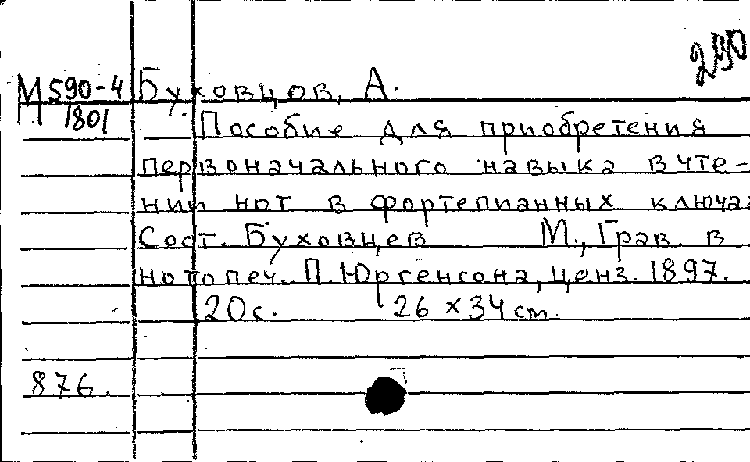 290
М 590-4 Буховцов, А.
1801
Пособие для приобретения
первоначального навыка в чте-
нии нот в фортепианных ключах
Сост. Буховцев М., Грав. в
нотопеч. П. Юргенсона, ценз. 1897.
20 с. 26 x 34 cm.
876.